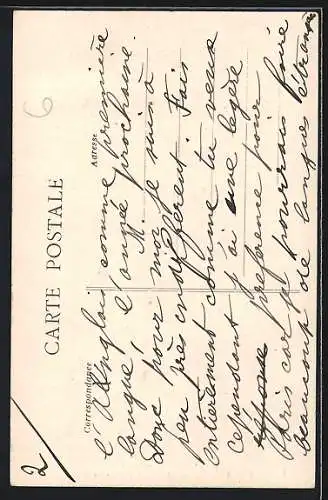 2/
6
CARTE POSTALE
Correspondance
Adresse
l'Anglais comme première
langue l'année prochaine.
Donc pour moi je suis à
peu près indifférent. Fais
entièrement comme tu veux
cependant j'ai une légère
préférence pour
Paris car je pourrais lire
beaucoup de langues étrang